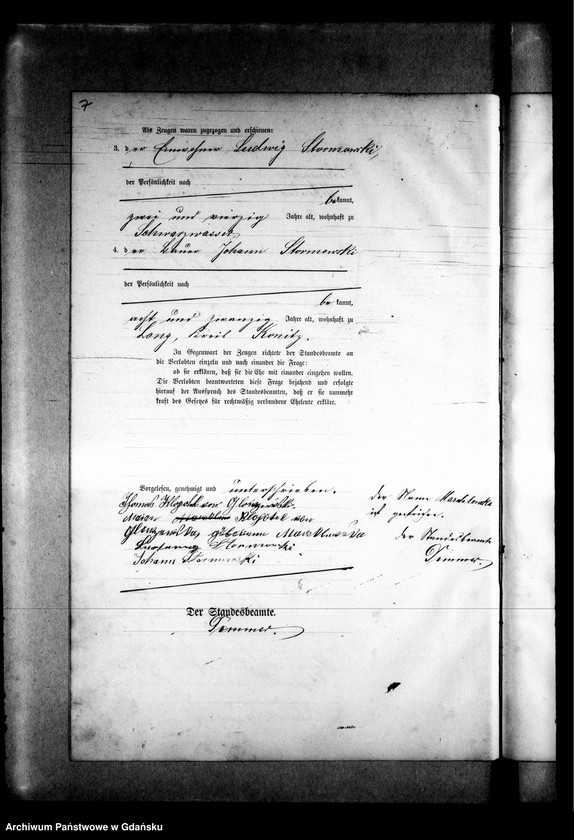 7
Als Zeugen waren zugezogen und erschienen:
3. der Einwohner Ludwig Stormowski,
der Persönlichkeit nach
bekannt,
zwei und vierzig Jahre alt, wohnhaft zu
Schwarzwasser
4. der Bauer Johann Stormowski
der Persönlichkeit nach
be kannt,
acht und zwanzig Jahre alt, wohnhaft zu
Long, Kreis Konitz.
In Gegenwart der Zeugen richtete der Standesbeamte an
die Verlobten einzeln und nach einander die Frage:
ob sie erklären, daß sie die Ehe mit einander eingehen wollen.
Die Verlobten beantworteten diese Frage bejahend und erfolgte
hierauf der Ausspruch des Standesbeamten, daß er sie nunmehr
kraft des Gesetzes für rechtmäßig verbundene Eheleute erkläre.
Vorgelesen, genehmigt und unterschrieben.
Thomas Klopotek von Glonczewski.
Klopotek von
geborene
Stormowski
Johann Stormowski
der Name
ist gestrichen.
der Standesbeamte
Temmer.
Der Standesbeamte.
Temmer.
Archiwum Państwowe w Gdańsku